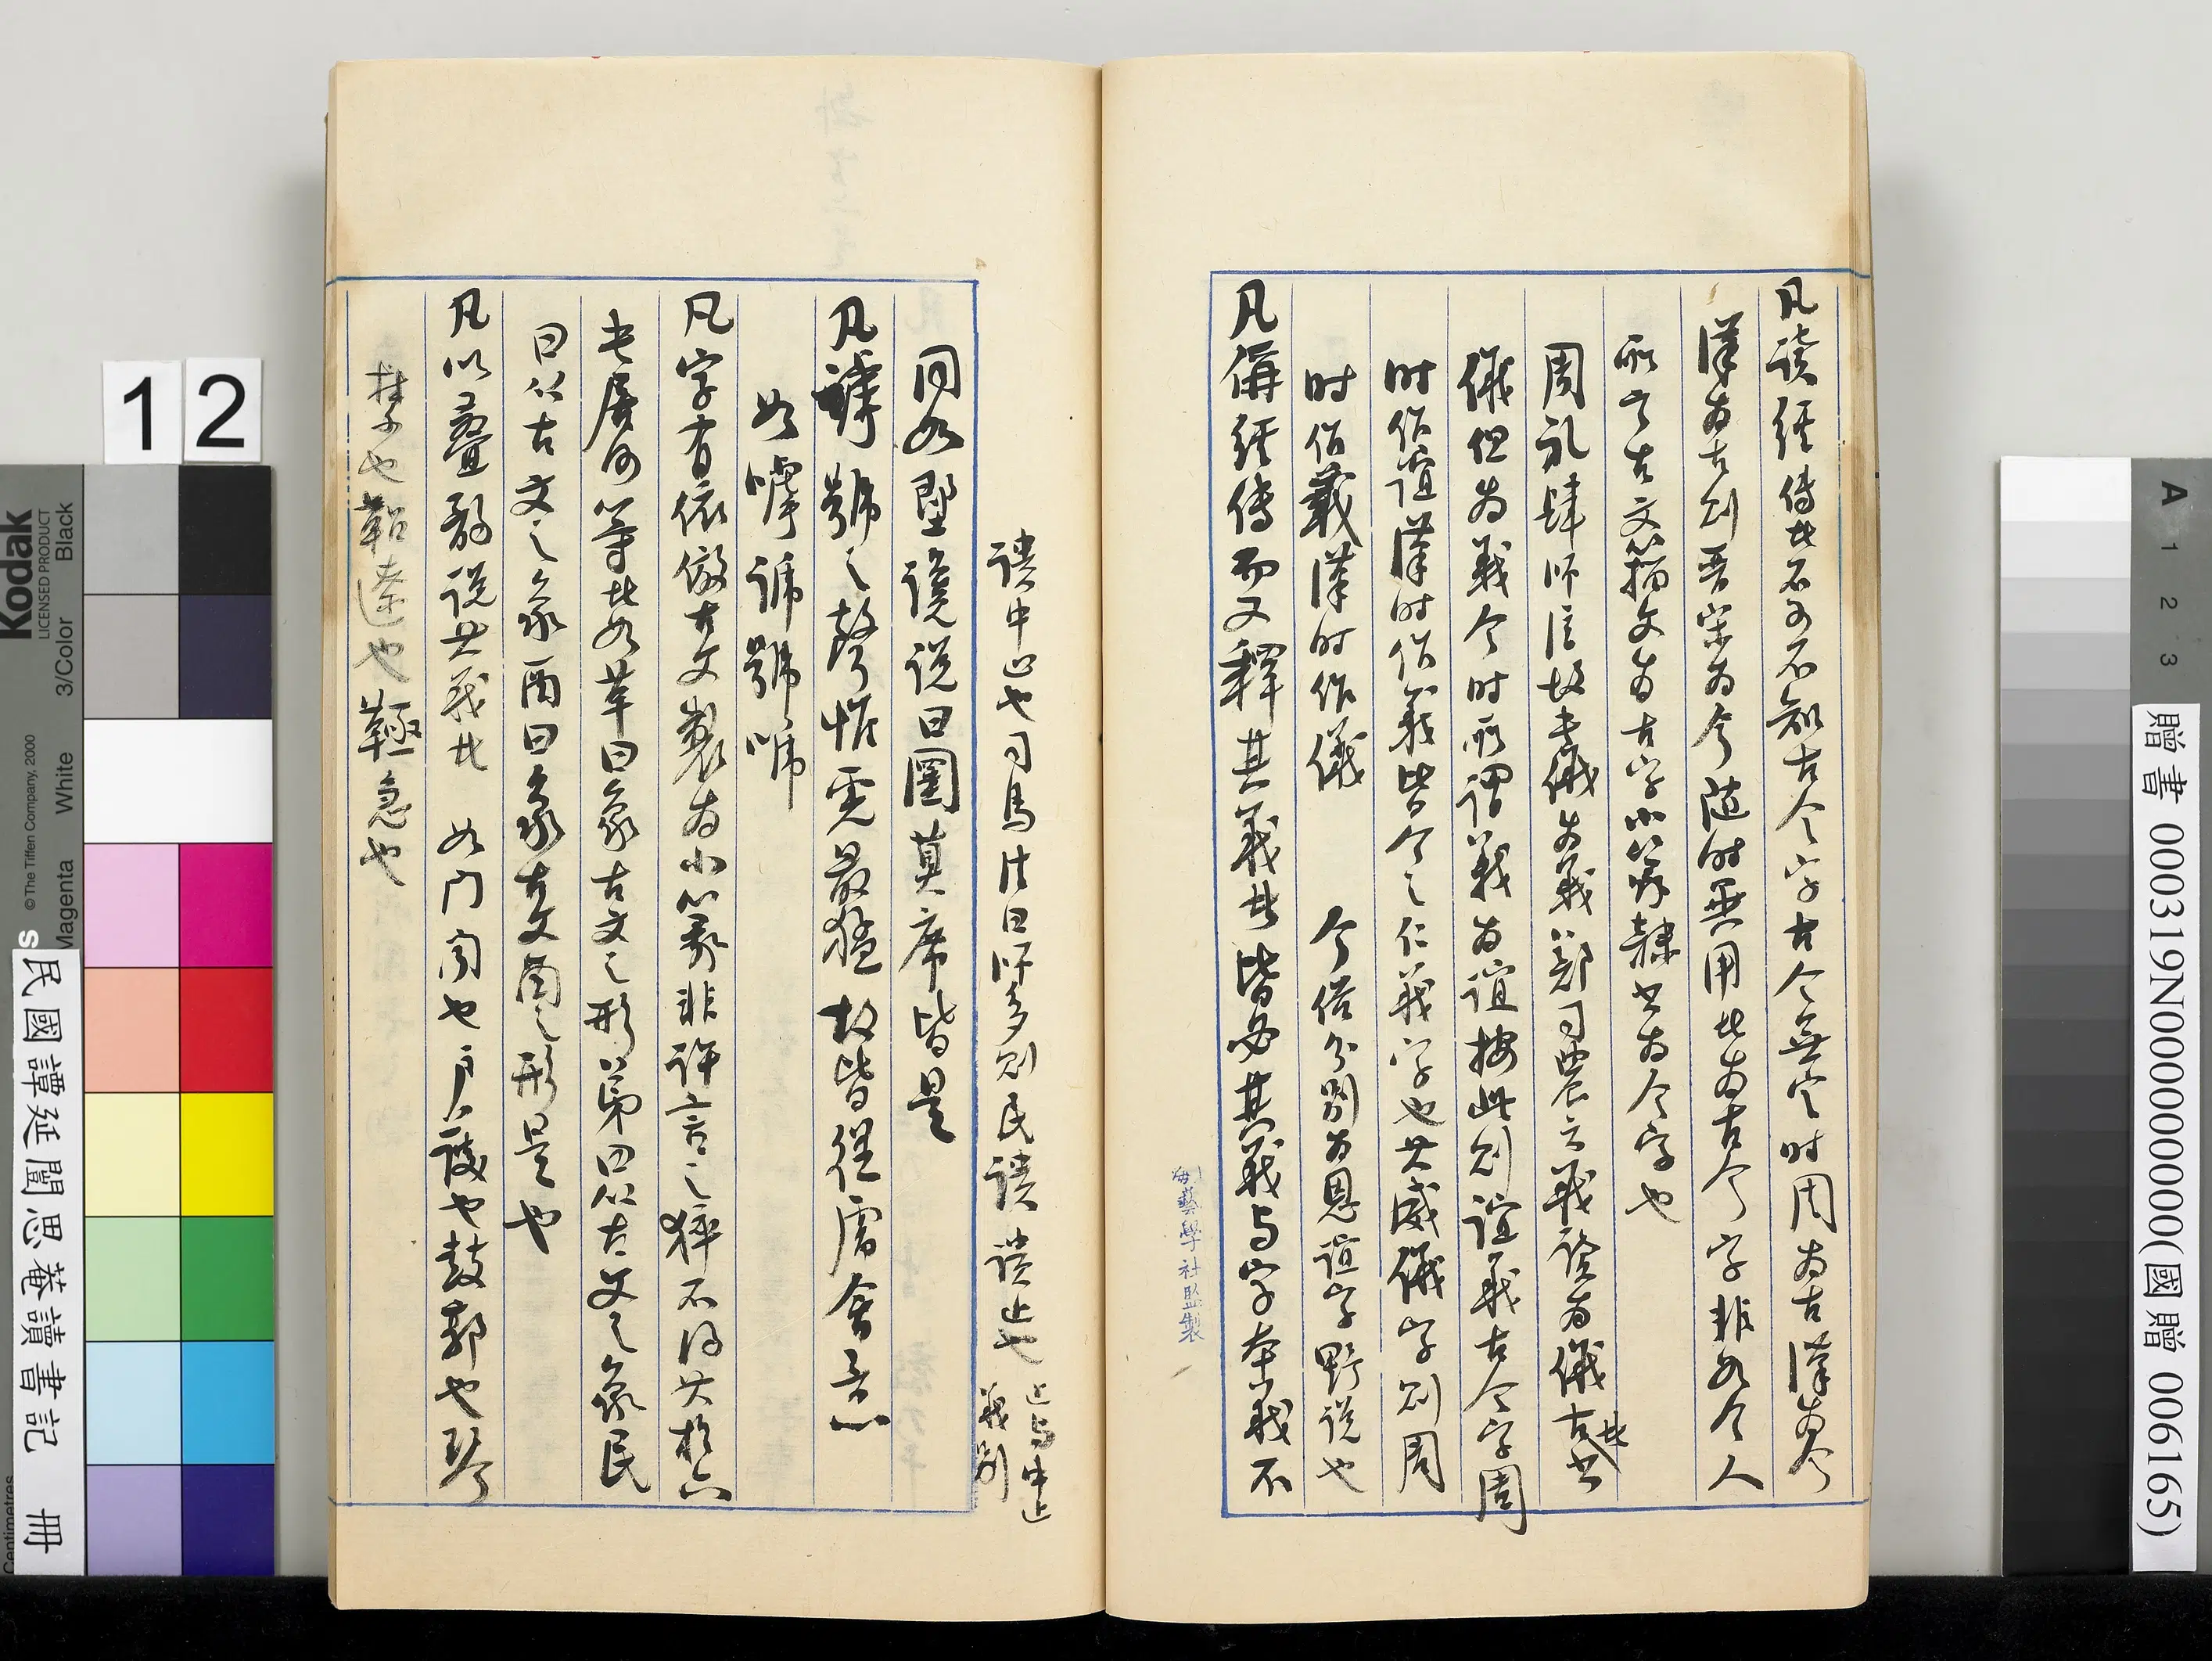 凡讀經傳者不可不知古今字古今無定時周為古漢為今
漢為古則晉宋為今隨時異用者為古今字非如今人
所言古文籀文為古字小篆隸書為今字也
周禮肆師注故書儀為義鄭司農云義讀為儀古者書
儀但為義今時所謂義為誼按此則誼義古今字周
時作誼漢時作義皆今之仁義字也其威儀字則周
時作義漢時作儀 今俗分別為恩誼字野說也
凡偁經傳而又釋其義者皆必其義與字本義不
制藝學社監製
讀中止也司馬法曰師多則民讀讀止也
止與中止
義別
同如堲讒說曰圛莫席皆是
凡嘑號之聲惟虎最猛故皆從虍會意
如嘑諕號唬
凡字有依倣古文製為小篆非許言之猝不得其於六
書居何等者如革曰象古文之形弟曰从古文之象民
曰从古文之象酉曰象古文酉之形是也
凡以疊韵說其義者 如門聞也戶護也鼓郭也琴
禁也鞀遼也䩯急也
12
Kodak
LICENSED PRODUCT
© The Tiffen Company, 2000
Black
3/Color
White
Magenta
Centimetres
民國譚延闓思菴讀書記 冊
A 1 2 3
贈書 000319N000000000000(國贈 006165)